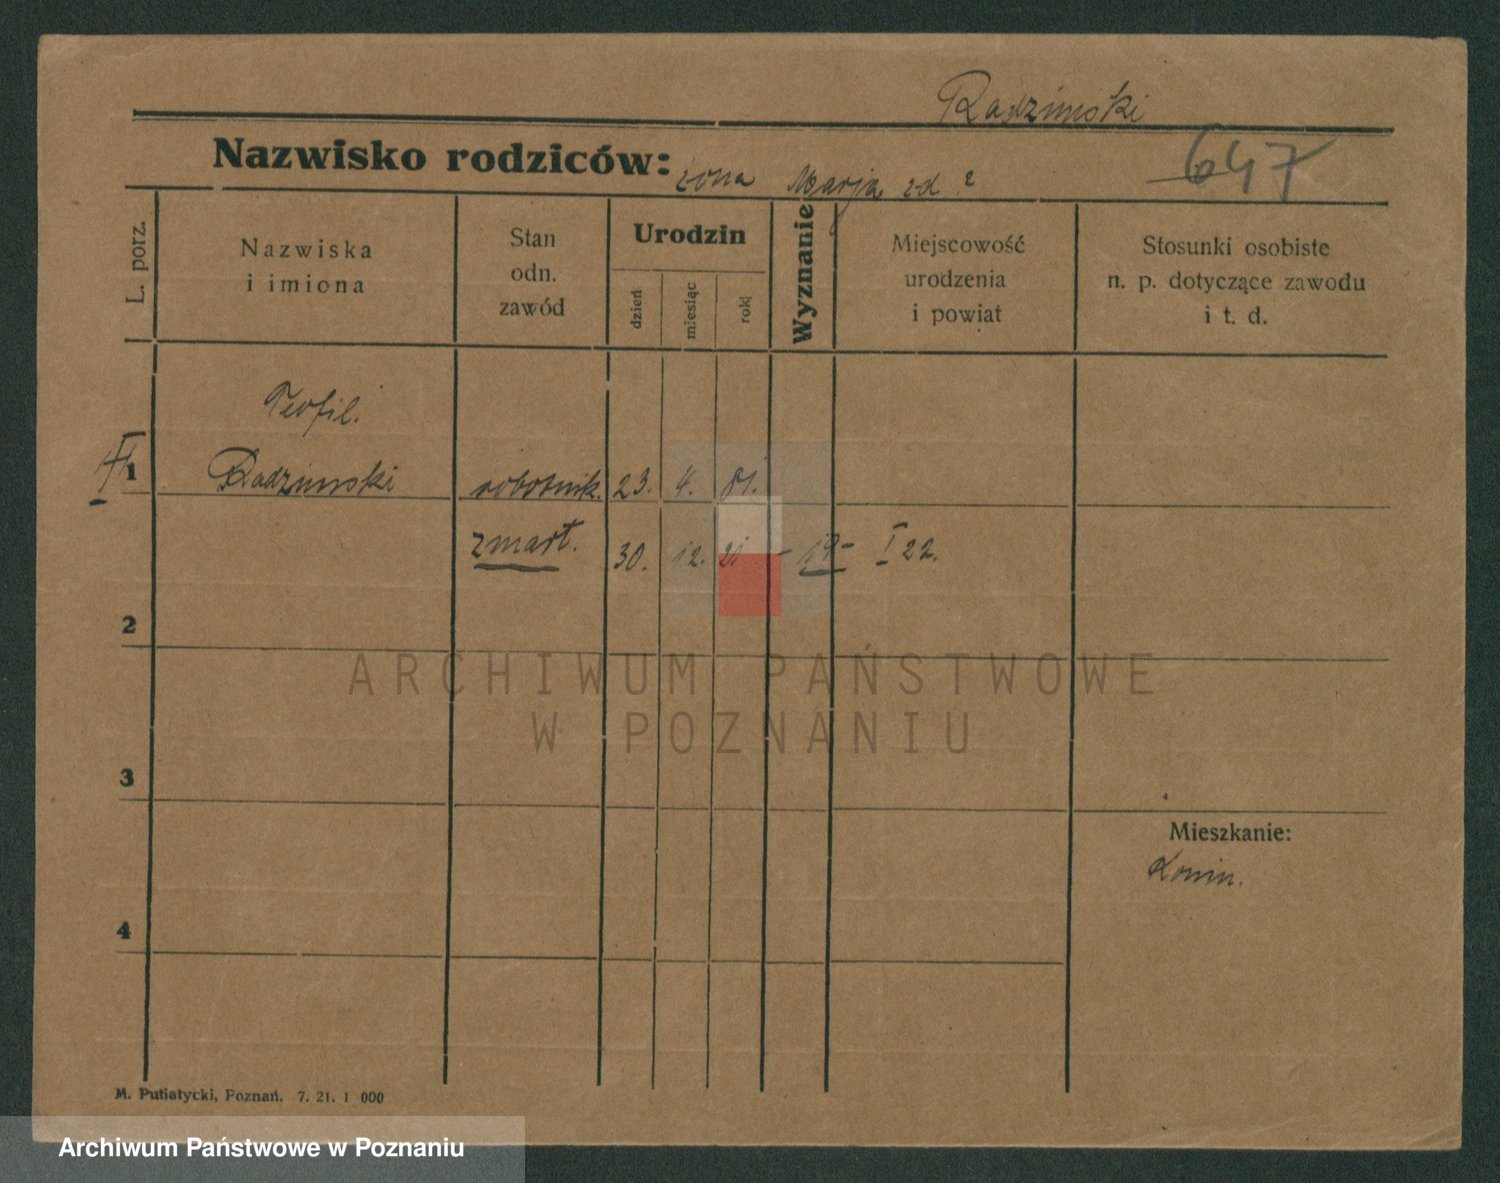 Radzimski
Nazwisko rodziców: żona Marja zd ?
647
L. porz.
Nazwiska
i imiona
Stan
odn.
zawód
Urodzin
dzień
miesiąc
rok
Wyznanie
Miejscowość
urodzenia
i powiat
Stosunki osobiste
n. p. dotyczące zawodu
i t. d.
Teofil.
1
Radzimski robotnik. 23. 4. 81.
zmarł. 30. 12. 21 - 19 - I 22.
2
ARCHIWUM PAŃSTWOWE
W POZNANIU
3
Mieszkanie:
Konin.
4
M. Putiatycki, Poznań. 7. 21. 1 000
Archiwum Państwowe w Poznaniu